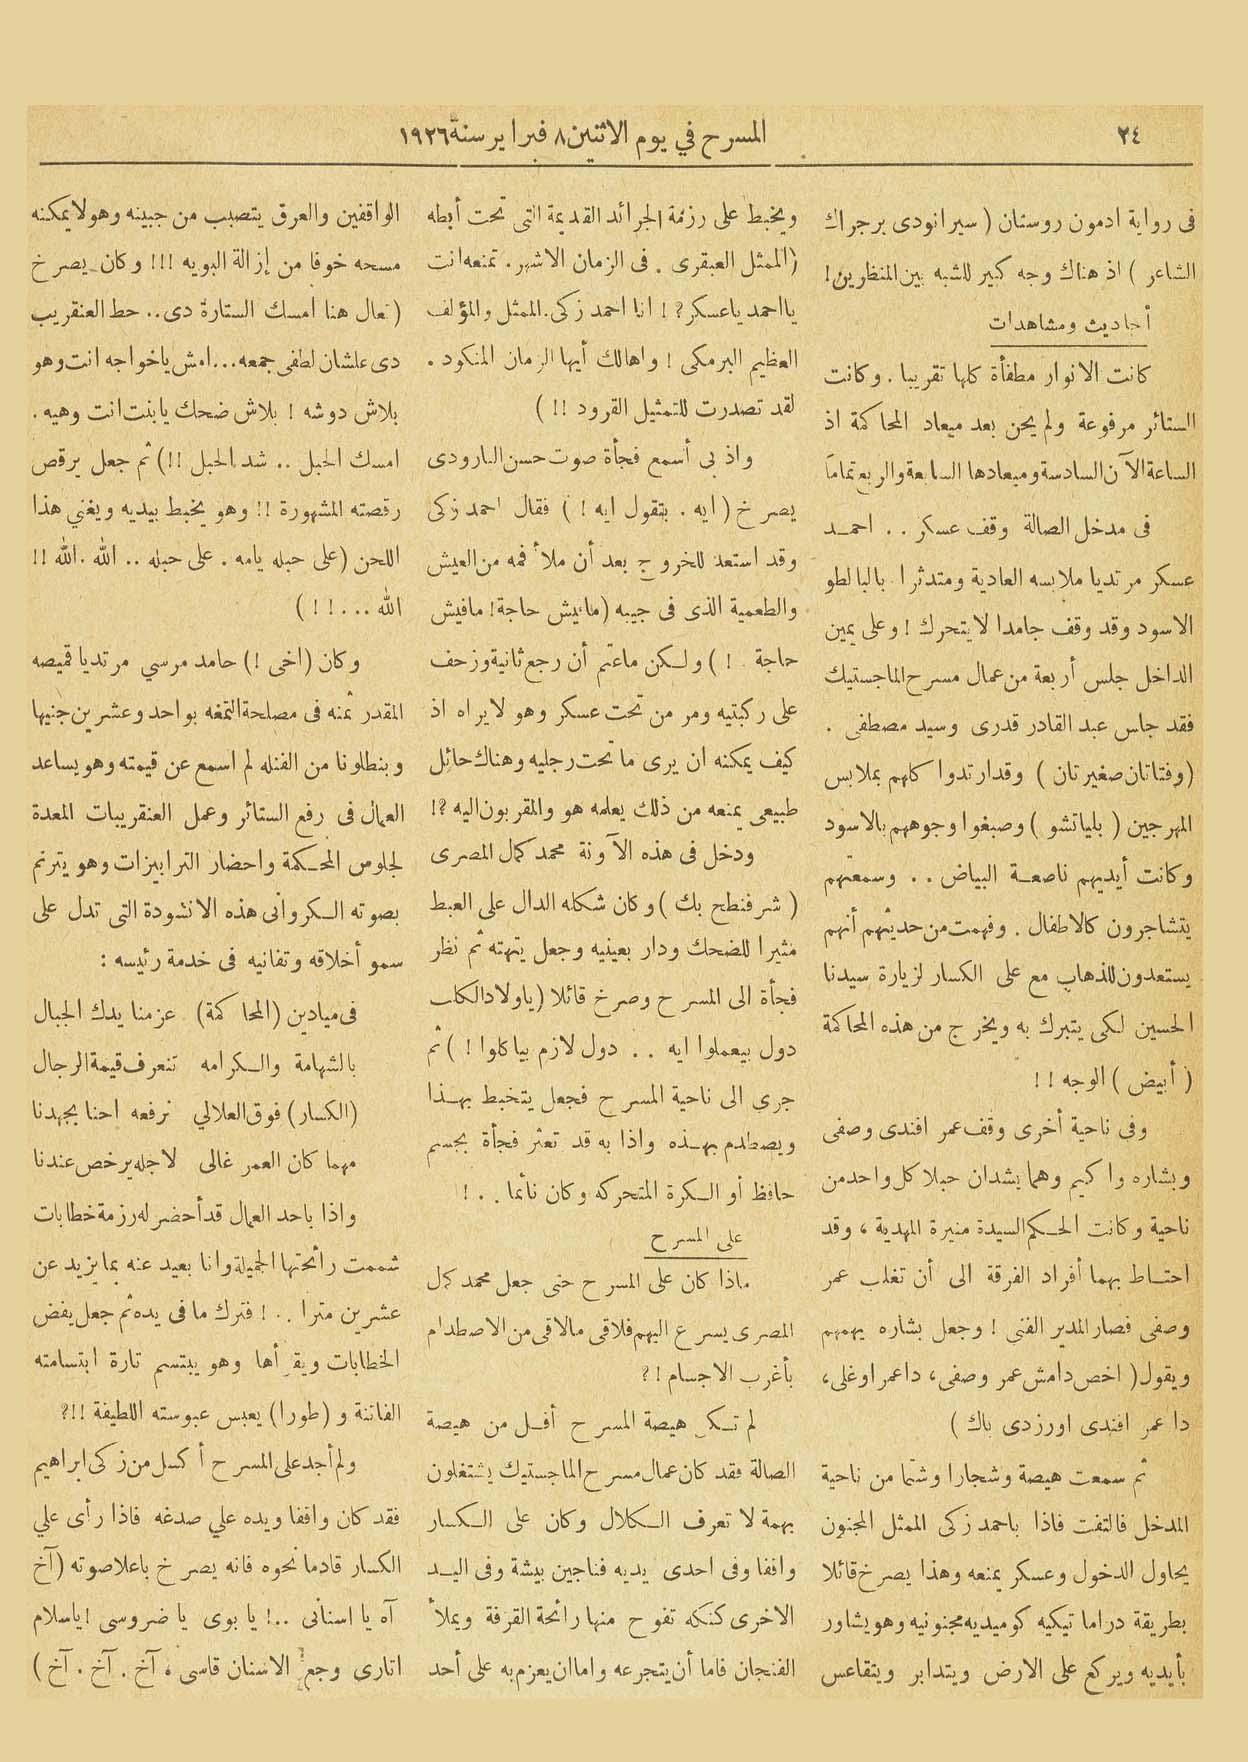 ٢٤
المسرح في يوم الاثنين ٨ فبراير سنة ١٩٢٦
فى رواية ادمون روستان ( سيرانودى برجراك
الشاعر ) اذ هناك وجه كبير للشبه بين المنظرين !
أحاديث ومشاهدات
كانت الانوار مطفأة كلها تقريبا . وكانت
الستائر مرفوعة ولم يحن بعد ميعاد المحاكمة اذ
الساعة الآن السادسة وميعادها السابعة والربع تماما
فى مدخل الصالة وقف عسكر . . احمـد
عسكر مرتديا ملابسه العادية ومتدثرا بالبالطو
الاسود وقد وقف جامدا لا يتحرك ! وعلى يمين
الداخل جلس أربعة من عمال مسرح الماجستيك
فقد جلس عبد القادر قدرى وسيد مصطفى .
( وفتاتان صغيرتان ) وقد ارتدوا كلهم بملابس
المهرجين ( بلياتشو ) وصبغوا وجوههم بالاسود
وكانت أيديهم ناصعـة البياض . . وسمعتهم
يتشاجرون كالاطفال . وفهمت من حديثهم أنهم
يستعدون للذهاب مع على الكسار لزيارة سيدنا
الحسين لكى يتبرك به ويخرج من هذه المحاكمة
( أبيض ) الوجه ! !
وفى ناحية أخرى وقف عمر افندى وصفى
وبشاره واكيم وهما يشدان حبلا كل واحد من
ناحية وكانت الحـكم السيدة منيرة المهدية ، وقد
احتـاط بهما أفراد الفرقة الى أن تغلب عمر
وصفى فصار المدير الفنى ! وجعل بشاره يهمهم
ويقول ( اخص دامش عمر وصفى ، دا عمر اوغلى ،
دا عمر افندى اورزدى باك )
ثم سمعت هيصة وشجارا وشتما من ناحية
المدخل فالتفت فاذا باحمد زكى الممثل المجنون
يحاول الدخول وعسكر يمنعه وهذا يصرخ قائلا
بطريقة دراماتيكيه كوميديه مجنونيه وهو يشاور
بأيديه ويركع على الارض ويتدابر ويتقاعس
ويخبط على رزمة الجرائد القديمة التى تحت أبطه
( الممثل العبقرى . فى الزمان الاشهر . تمنعه انت
يا احمد يا عسكر ؟ ! انا احمد زكى . الممثل والمؤلف
العظيم البرمكى ! واهالك أيها الزمان المنكود .
لقد تصدرت للتمثيل القرود !! )
واذ بى أسمع فجأة صوت حسن البارودى
يصرخ ( ايه . بتقول ايه ! ) فقال احمد زكى
وقد استعد للخروج بعد أن ملأ فمه من العيش
والطعمية الذى فى جيبه ( مافيش حاجة ! مافيش
حاجة . ! ) ولـكن ماعتم أن رجع ثانية وزحف
على ركبتيه ومر من تحت عسكر وهو لايراه اذ
كيف يمكنه ان يرى ما تحت رجليه وهناك حائل
طبيعى يمنعه من ذلك يعلمه هو والمقربون اليه ؟!
ودخل فى هذه الآونة محمد كمال المصرى
( شرفنطح بك ) وكان شكله الدال على العبط
مثيرا للضحك ودار بعينيه وجعل يتهته ثم نظر
فجأة الى المسرح وصرخ قائلا ( ياولاد الكلب
دول بيعملوا ايه . . دول لازم بياكلوا ! ) ثم
جرى الى ناحية المسرح فجعل يتخبط بهـذا
ويصطدم بهـذه واذا به قد تعثر فجأة بجسم
حافظ أو الـكرة المتحركه وكان نائما . . !
على المسرح
ماذا كان على المسرح حتى جعل محمد كمال
المصرى يسرع اليهم فلاقى مالاقى من الاصطدام
بأغرب الاجسام ! ؟
لم تـكن هيصة المسرح أقـل من هيصة
الصالة فقد كان عمال مسرح الماجستيك يشتغلون
بهمة لا تعرف الـكلال وكان على الـكسار
واقفا وفى احدى يديه فناجين بيشة وفى اليـد
الاخرى كنكه تفوح منها رائحة القرفة ويملأ
الفنجان فاما أن يتجرعه واما ان يعزم به على أحد
الواقفين والعرق يتصبب من جبينه وهو لا يمكنه
مسحه خوفا من إزالة البويه !!! وكان يصرخ
( تعال هنا امسك الستارة دى .. حط العنقريب
دى علشان لطفى جمعه... امش ياخواجه انت وهو
بلاش دوشه ! بلاش ضحك يابنت انت وهيه .
امسك الحبل .. شد الحبل !! ) ثم جعل يرقص
رقصته المشهورة !! وهو يخبط بيديه ويغني هذا
اللحن ( على حبله يامه . على حبله .. الله . الله !!
الله ...!! )
وكان ( اخى ! ) حامد مرسي مرتديا قميصه
المقدر ثمنه فى مصلحة التمغه بواحد وعشرين جنيها
وبنطلونا من الفنله لم اسمع عن قيمته وهو يساعد
العمال فى رفع الستائر وعمل العنقريبات المعدة
لجلوس المحـكمة واحضار الترابيزات وهو يترنم
بصوته الـكروانى هذه الانشودة التى تدل على
سمو أخلاقه وتفانيه فى خدمة رئيسه :
فى ميادين (المحاكمة) عزمنا يدك الجبال
بالشهامة والـكرامه تنعرف قيمة الرجال
(الكسار) فوق العلالي نرفعه احنا بجهدنا
مهما كان العمر غالى لاجله يرخص عندنا
واذا باحد العمال قد أحضر له رزمة خطابات
شممت رائحتها الجميلة وانا بعيد عنه بما يزيد عن
عشرين مترا .. ! فترك ما فى يده ثم جعل يفض
الخطابات ويقرأها وهو يبتسم تارة ابتسامته
الفاتنة و (طورا) يعبس عبوسته اللطيفة !!؟
ولم أجد على المسرح أكسل من زكى ابراهيم
فقد كان واقفا ويده علي صدغه فاذا رأى علي
الكسار قادما نحوه فانه يصرخ باعلا صوته (آخ
آه يا اسنانى ..! يا بوى يا ضروسى ! ياسلام
اتارى وجع الاسنان قاسى ، آخ . آخ . آخ )